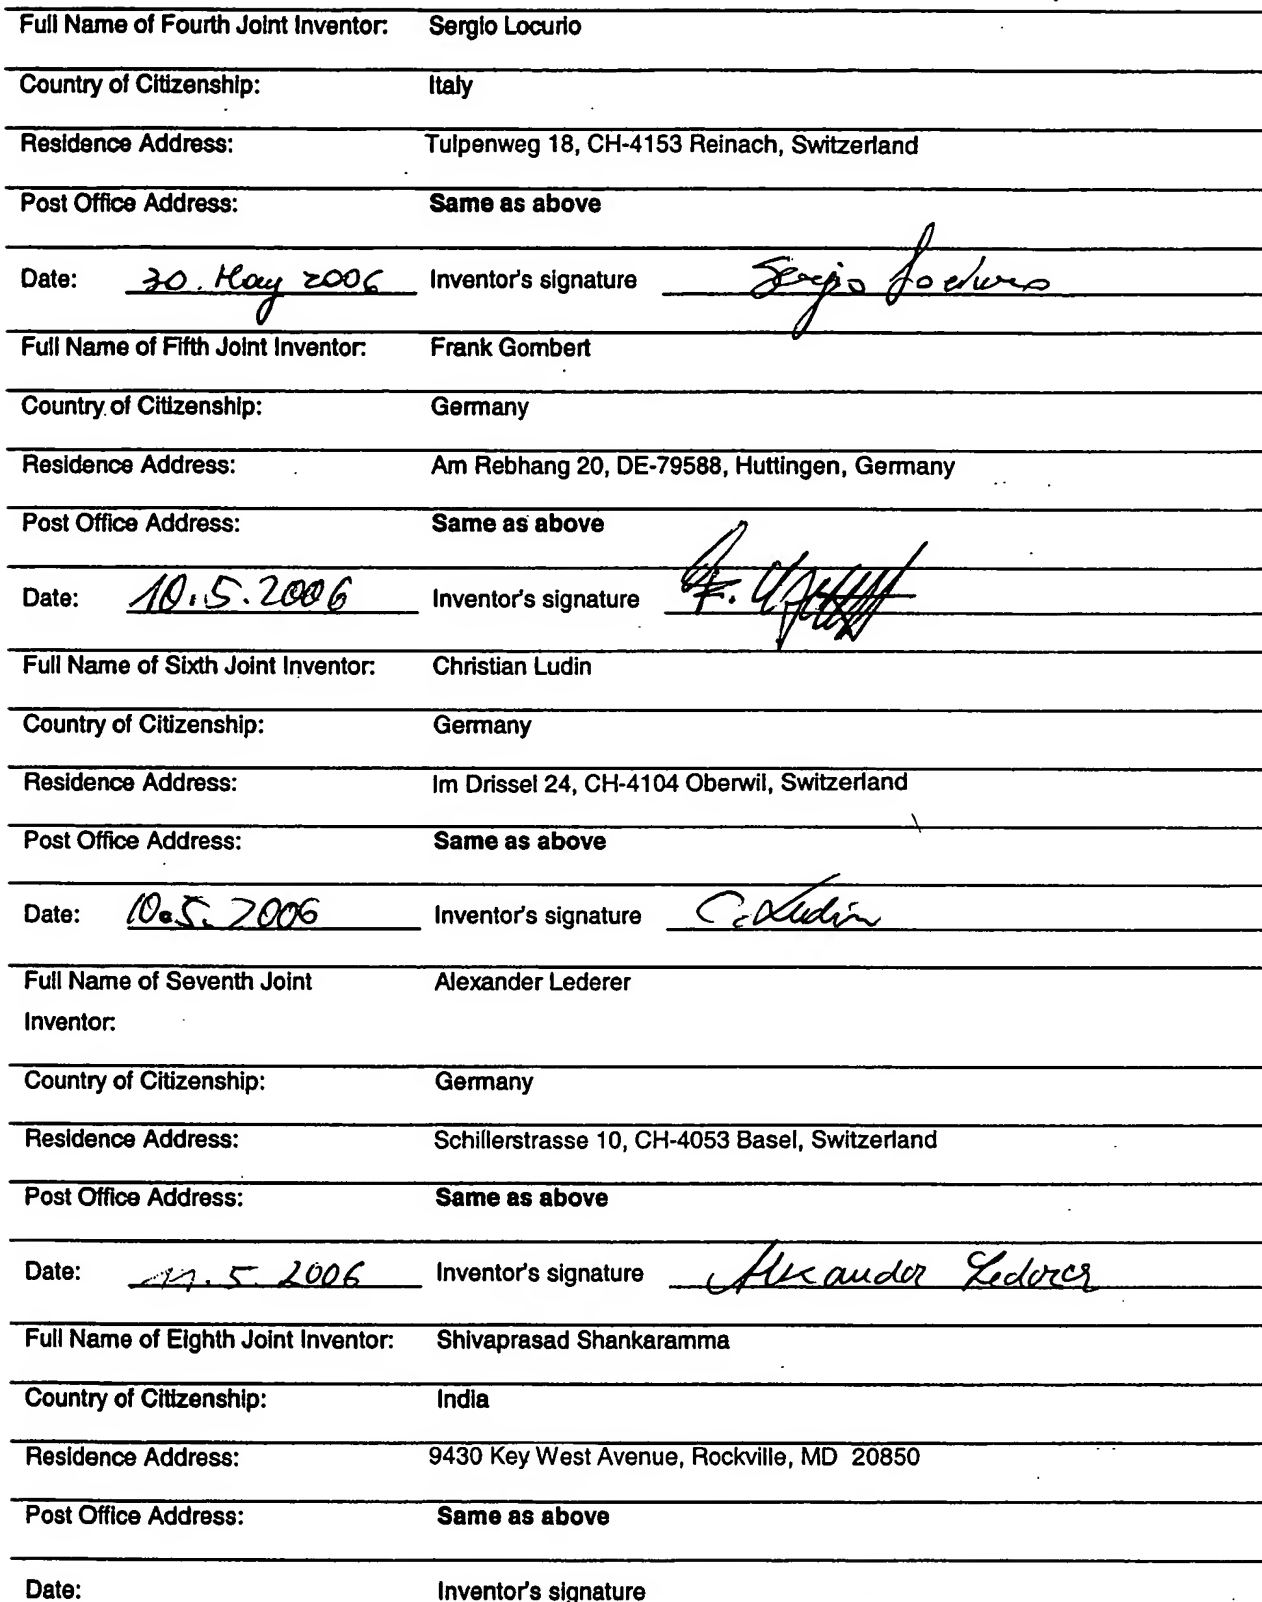 Full Name of Fourth Joint Inventor: Sergio Locurio
Country of Citizenship: Italy
Residence Address: Tulpenweg 18, CH-4153 Reinach, Switzerland
Post Office Address: Same as above
Date: 30. May 2006 Inventor's signature Sergio Locurio
Full Name of Fifth Joint Inventor: Frank Gombert
Country of Citizenship: Germany
Residence Address: Am Rebhang 20, DE-79588, Huttingen, Germany
Post Office Address: Same as above
Date: 10.5.2006 Inventor's signature F.
Full Name of Sixth Joint Inventor: Christian Ludin
Country of Citizenship: Germany
Residence Address: Im Drissel 24, CH-4104 Oberwil, Switzerland
Post Office Address: Same as above
Date: 10.5.2006 Inventor's signature C. Ludin
Full Name of Seventh Joint Alexander Lederer
Inventor:
Country of Citizenship: Germany
Residence Address: Schillerstrasse 10, CH-4053 Basel, Switzerland
Post Office Address: Same as above
Date: 11.5.2006 Inventor's signature Alexander Lederer
Full Name of Eighth Joint Inventor: Shivaprasad Shankaramma
Country of Citizenship: India
Residence Address: 9430 Key West Avenue, Rockville, MD 20850
Post Office Address: Same as above
Date: Inventor's signature